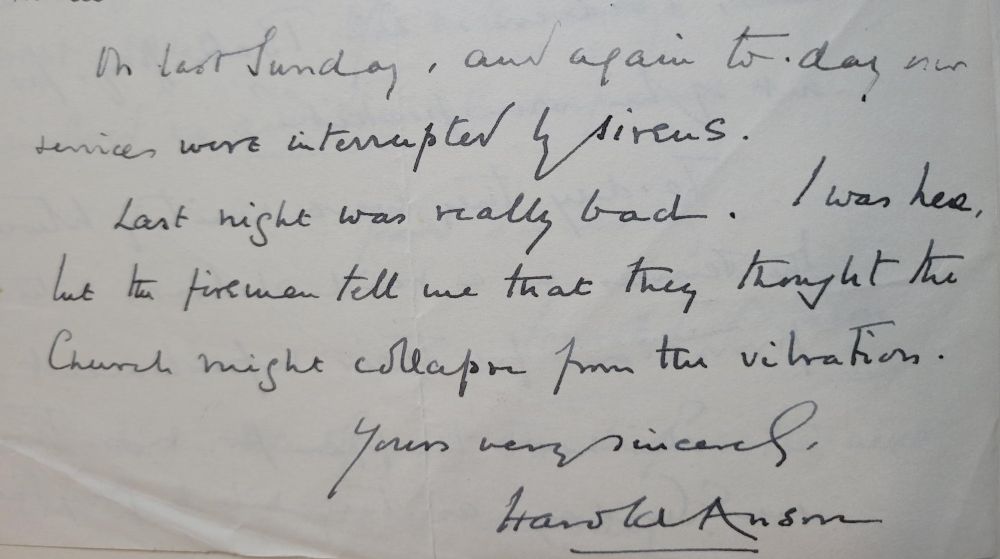 On last Sunday, and again to-day our
services were interrupted by sirens.
Last night was really bad. I was here,
but the firemen tell me that they thought the
Church might collapse from the vibration.
Yours very sincerely,
Harold Anson